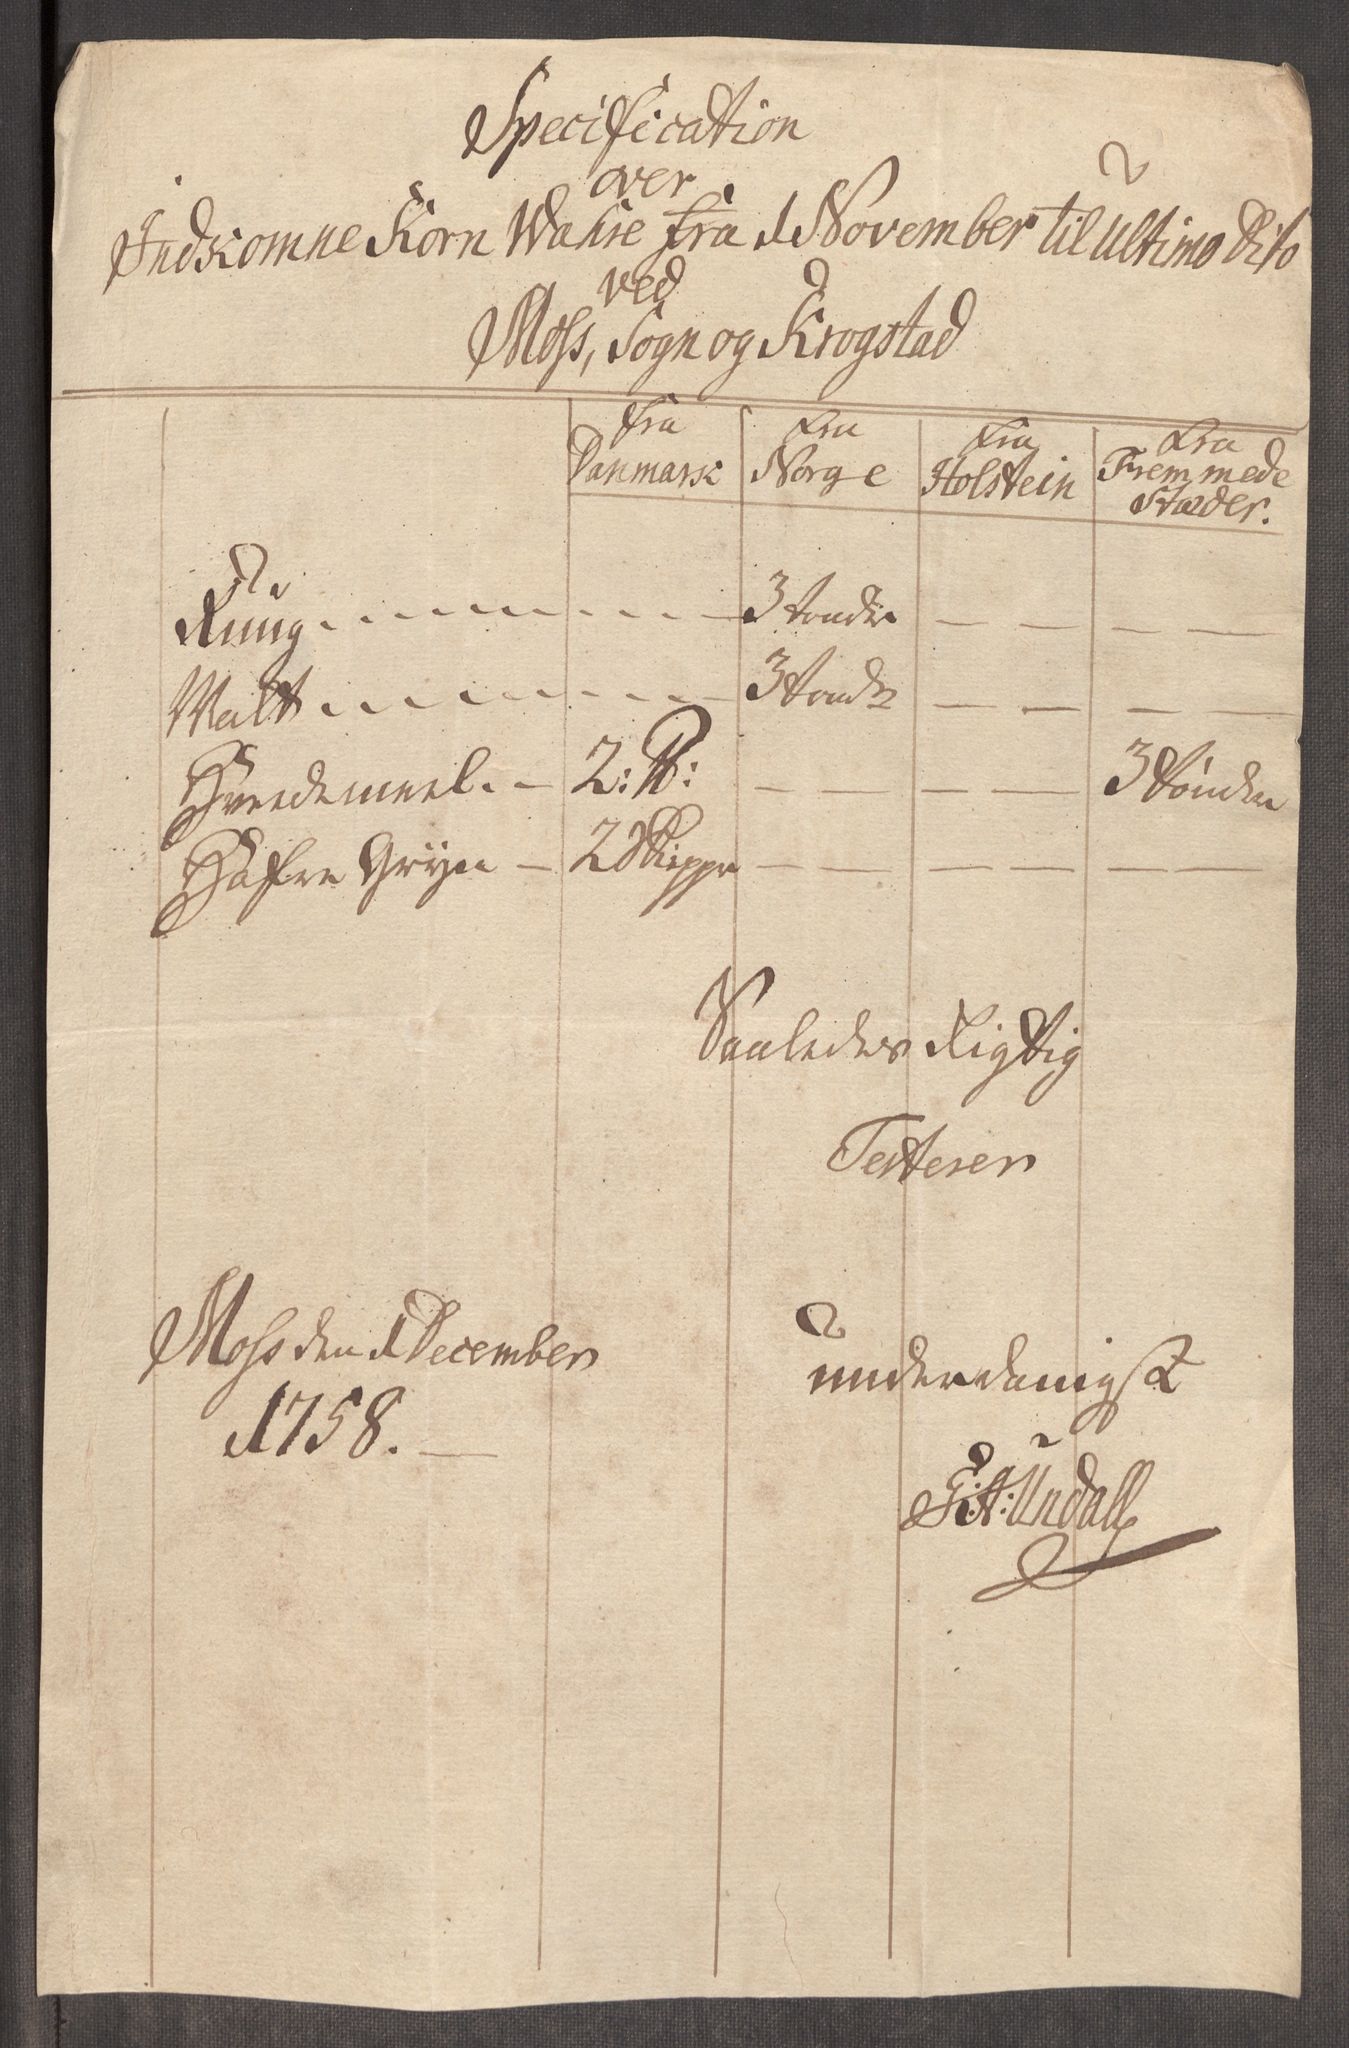 Specification
over
Indkomne Korn Wahre fra 1 November til ultimo dito
ved
Moss, Sogn og Krogstad
fra Danmark | fra Norge | fra Holstein | fra Fremmede Stæder.
Rúúg | 3 tønder
Malt | 3 tønder
Hvedemeel. | 2: ℔: | 3 tønder
Hafre Grÿn | 2 Skiepper
Saaledes Rigtig
Testerer
Moss den 1 December
1758.
únderdanigst
Undall